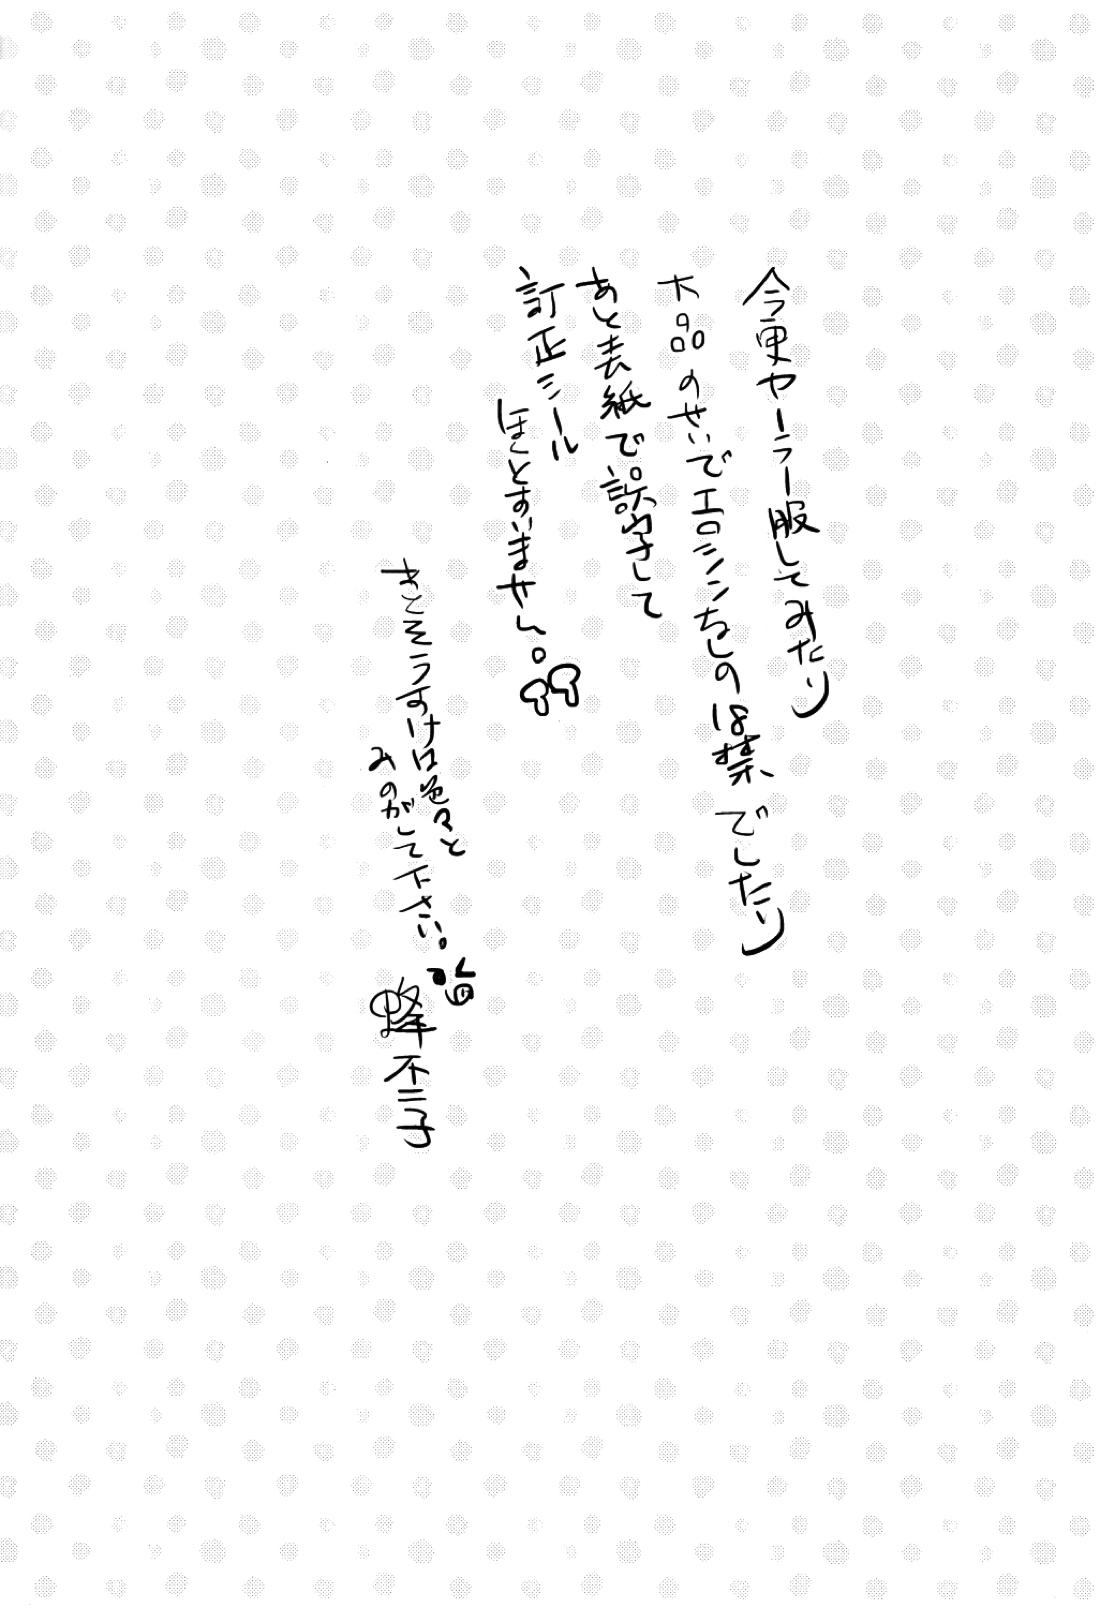 今更セーラー服してみたり
下品のせいでエロシンなしの18禁でしたり
あと表紙で誤字して
訂正シール
ほんとすいません。
きとそうすけは色々と
みのがして下さい。
蜂不二子